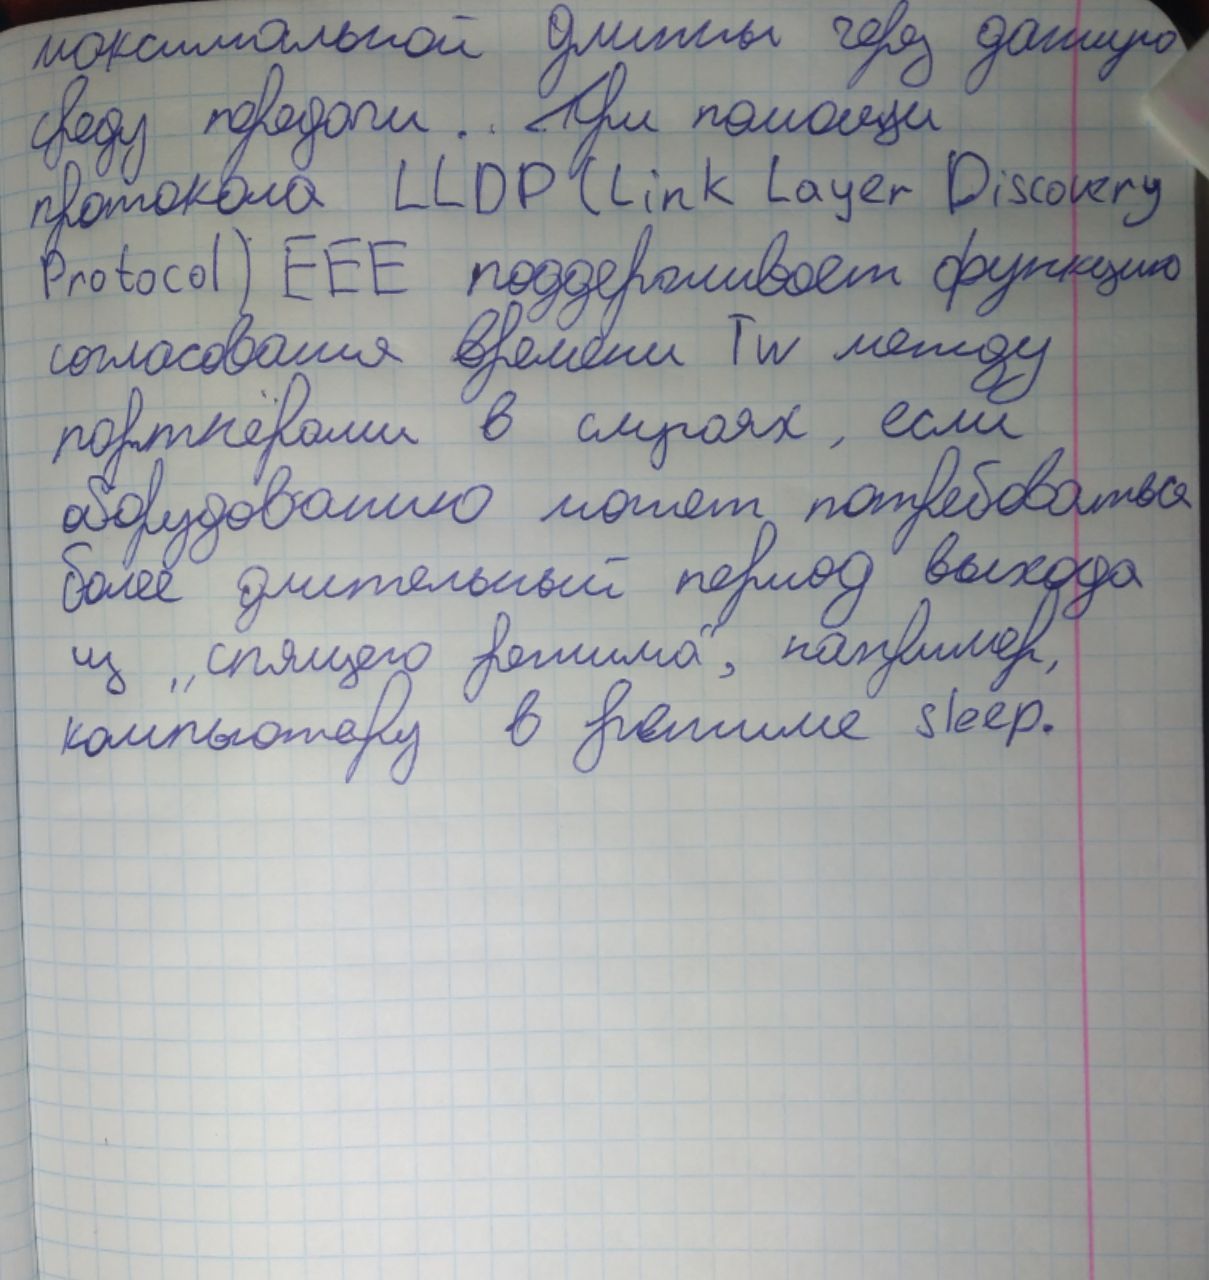 максимальной длины через данную
среду передачи... При помощи
протокола LLDP (Link Layer Discovery
Protocol) EEE поддерживает функцию
согласования времени Tw между
партнёрами в случаях, если
оборудованию может потребоваться
более длительный период выхода
из „спящего режима", например,
компьютеру в режиме sleep.